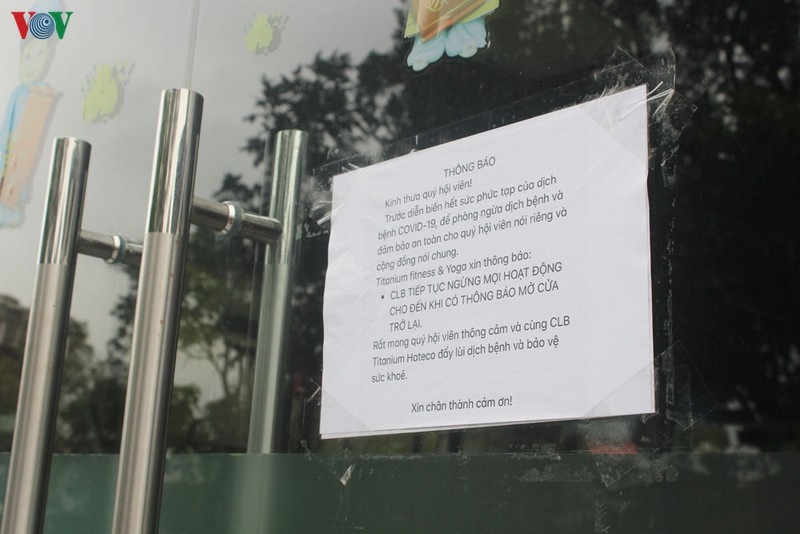 VOV
THÔNG BÁO
Kính thưa quý hội viên!
Trước diễn biến hết sức phức tạp của dịch
bệnh COVID-19, để phòng ngừa dịch bệnh và
đảm bảo an toàn cho quý hội viên nói riêng và
cộng đồng nói chung.
Titanium fitness & Yoga xin thông báo:
• CLB TIẾP TỤC NGỪNG MỌI HOẠT ĐỘNG
CHO ĐẾN KHI CÓ THÔNG BÁO MỞ CỬA
TRỞ LẠI.
Rất mong quý hội viên thông cảm và cùng CLB
Titanium Hateco đẩy lùi dịch bệnh và bảo vệ
sức khoẻ.
Xin chân thành cảm ơn!